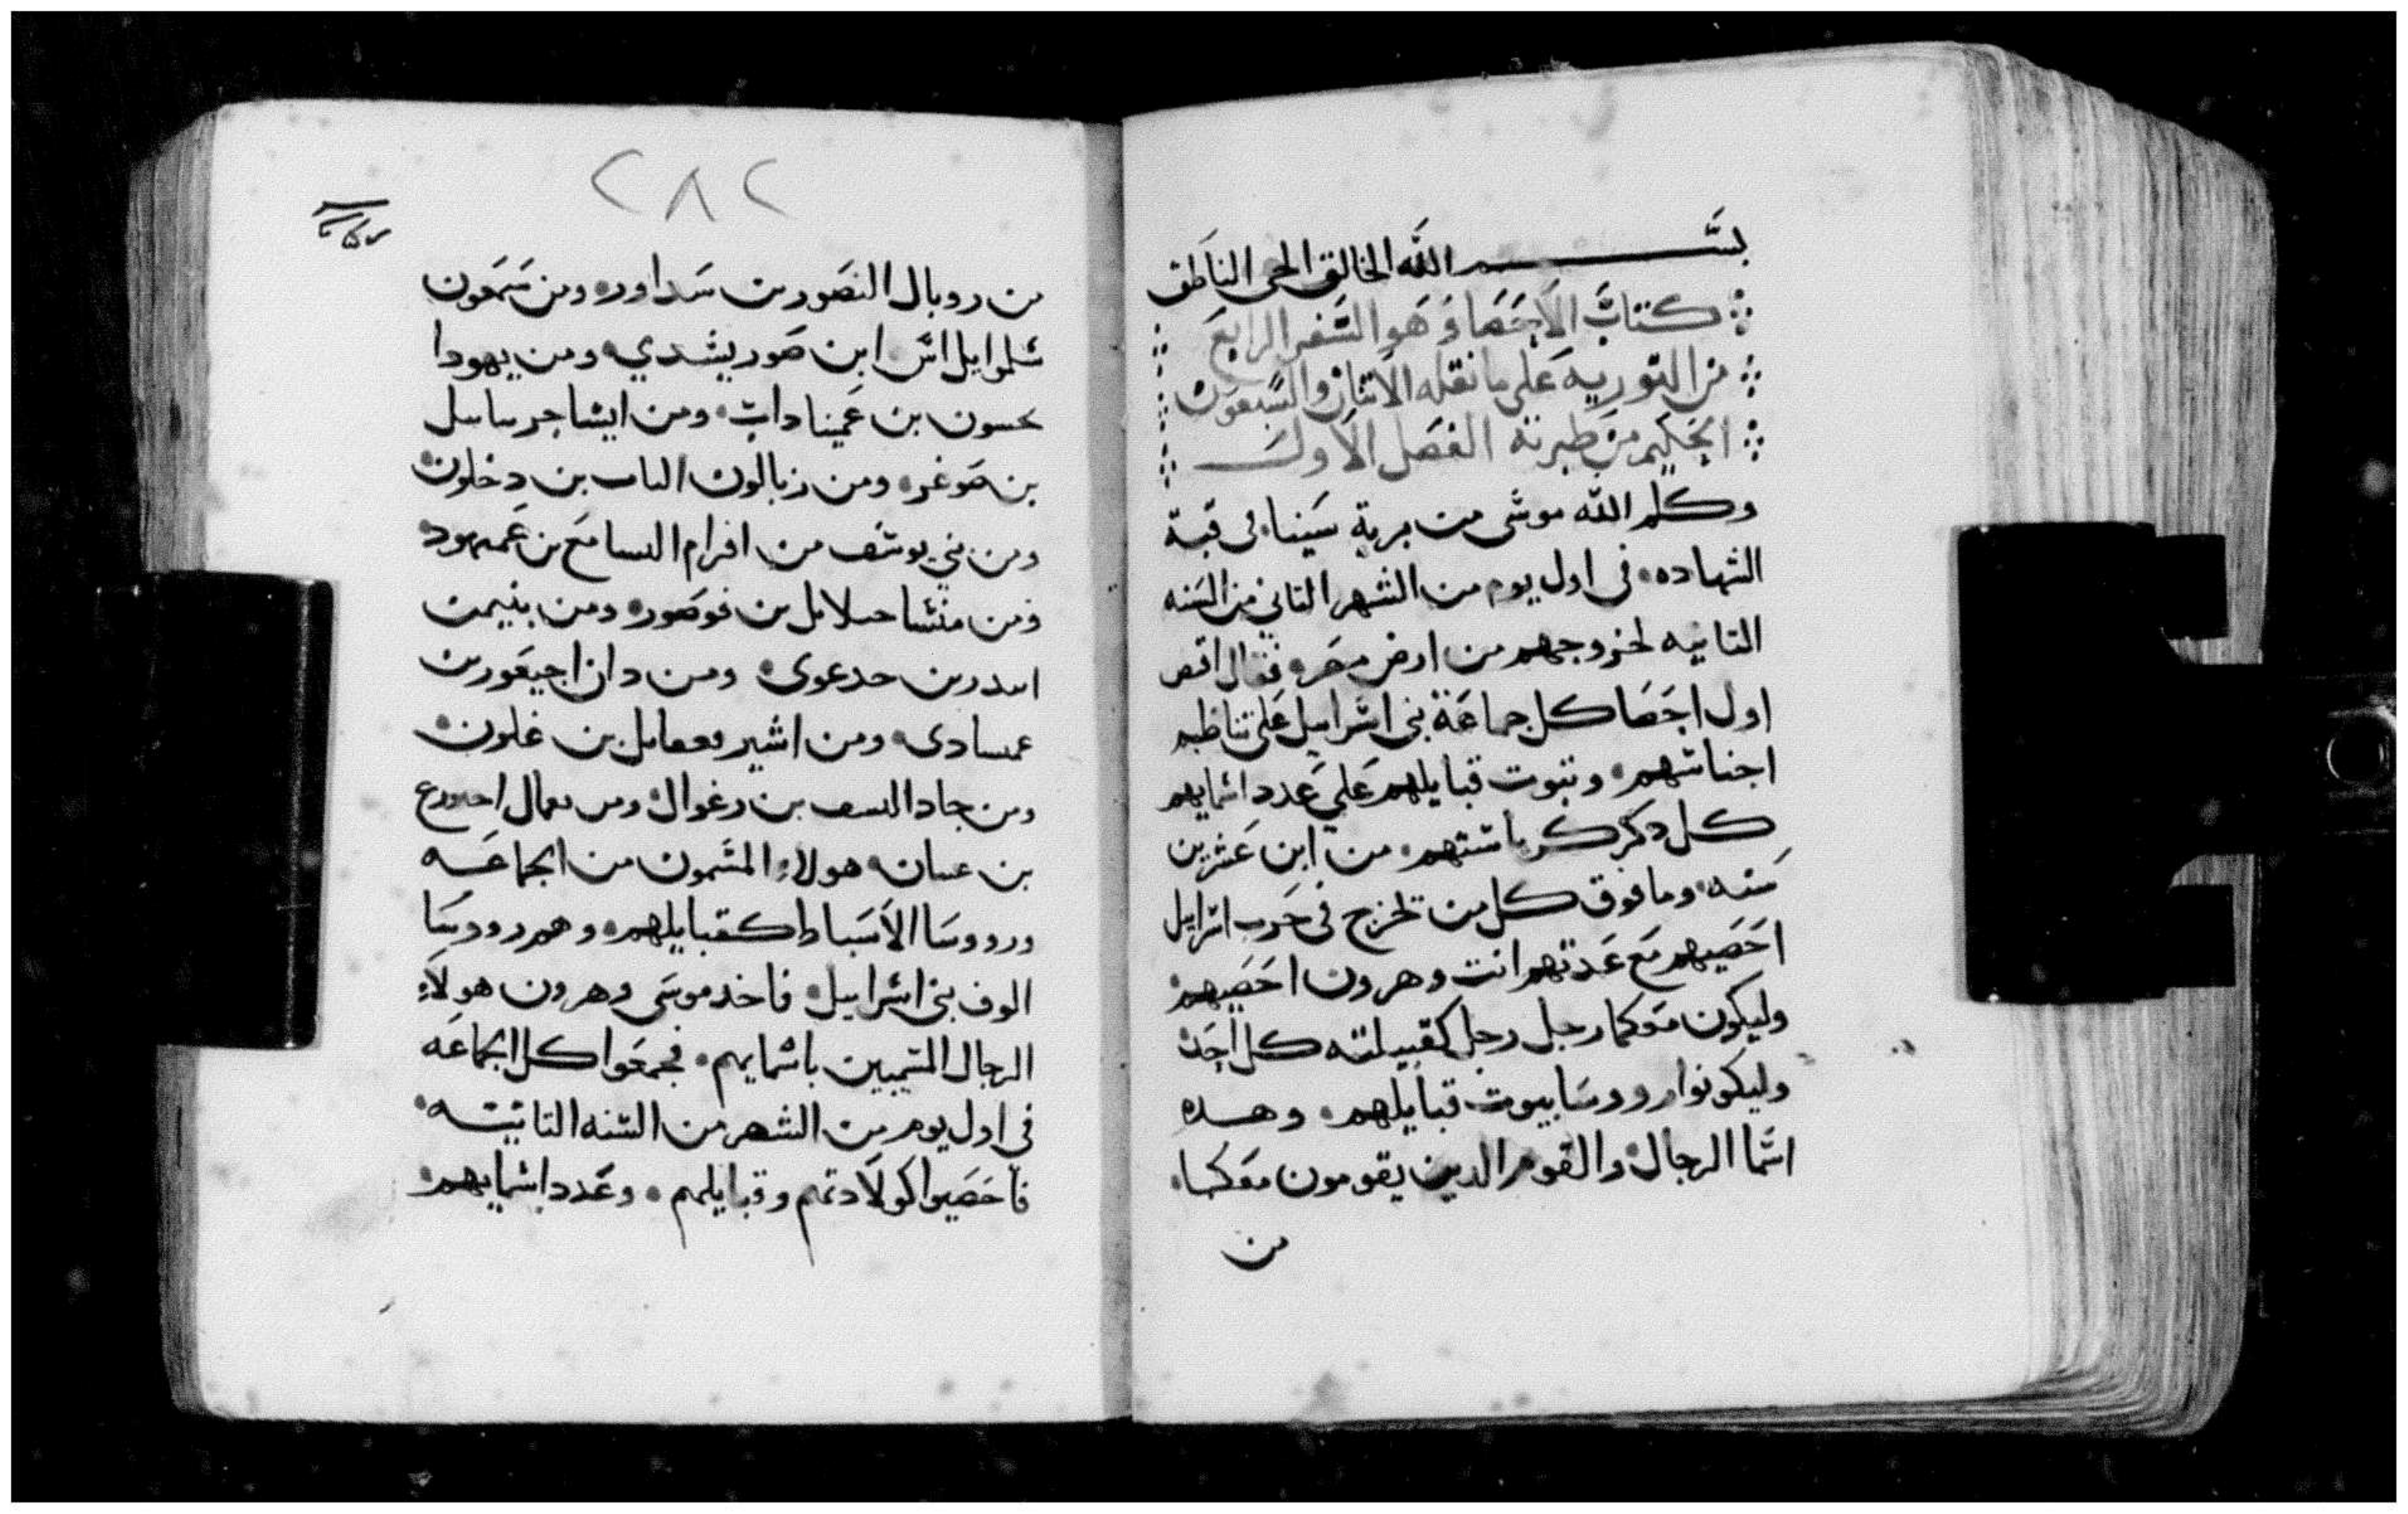 بسم الله الخالق الحى الناطق
كتاب الاحصا وهو السفر الرابع
من التوريه على ما نقله الاتنان والسبعون
الحكيم من طبرته الفصل الاول
وكلم الله موسى من برية سينا فى قبة
الشهاده فى اول يوم من الشهر التاني من السنه
التانيه لخروجهم من ارض مصر فقال اقص
اول احصا كل جماعة بنى اسراييل على تناظيم
اجناسهم وبيوت قبايلهم على عدد اسمايهم
كل دكر كرياستهم من ابن عشرين
سنه وما فوق كل من تخرج فى حرب اسراييل
احصيهم مع عدتهم انت وهرون احصيهم
وليكون معكما رجل رجل كقبيلته كل احد
وليكونوا رووسا بيوت قبايلهم وهده
اسما الرجال والقوم الدين يقومون معكما
من
٢٨٢
من روبال النصور بن سداور ومن سمعون
شلموايل اس ابن صوريشدي ومن يهودا
نحسون بن عميناداب ومن ايشاجر
بن صوغر ومن زبالون الياب بن دخلون
ومن بني يوسف من افرام السامع بن عميهود
ومن منشا بن فوصور ومن بنيمن
بن حدعوى ومن دان اجيعور بن
عمسادى ومن اشير بن غلون
ومن جاد اليسف بن رغوال ومن
بن عينان هولاء المسمون من الجماعه
ورووسا الاسباط كقبايلهم وهم رووسا
الوف بنى اسراييل فاخد موسى وهرون هولاء
الرجال المسميين باسمايهم فجمعوا كل الجماعه
فى اول يوم من الشهر من السنه التانيه
فاحصيوا كولادتهم وقبايلهم وعدد اسمايهم